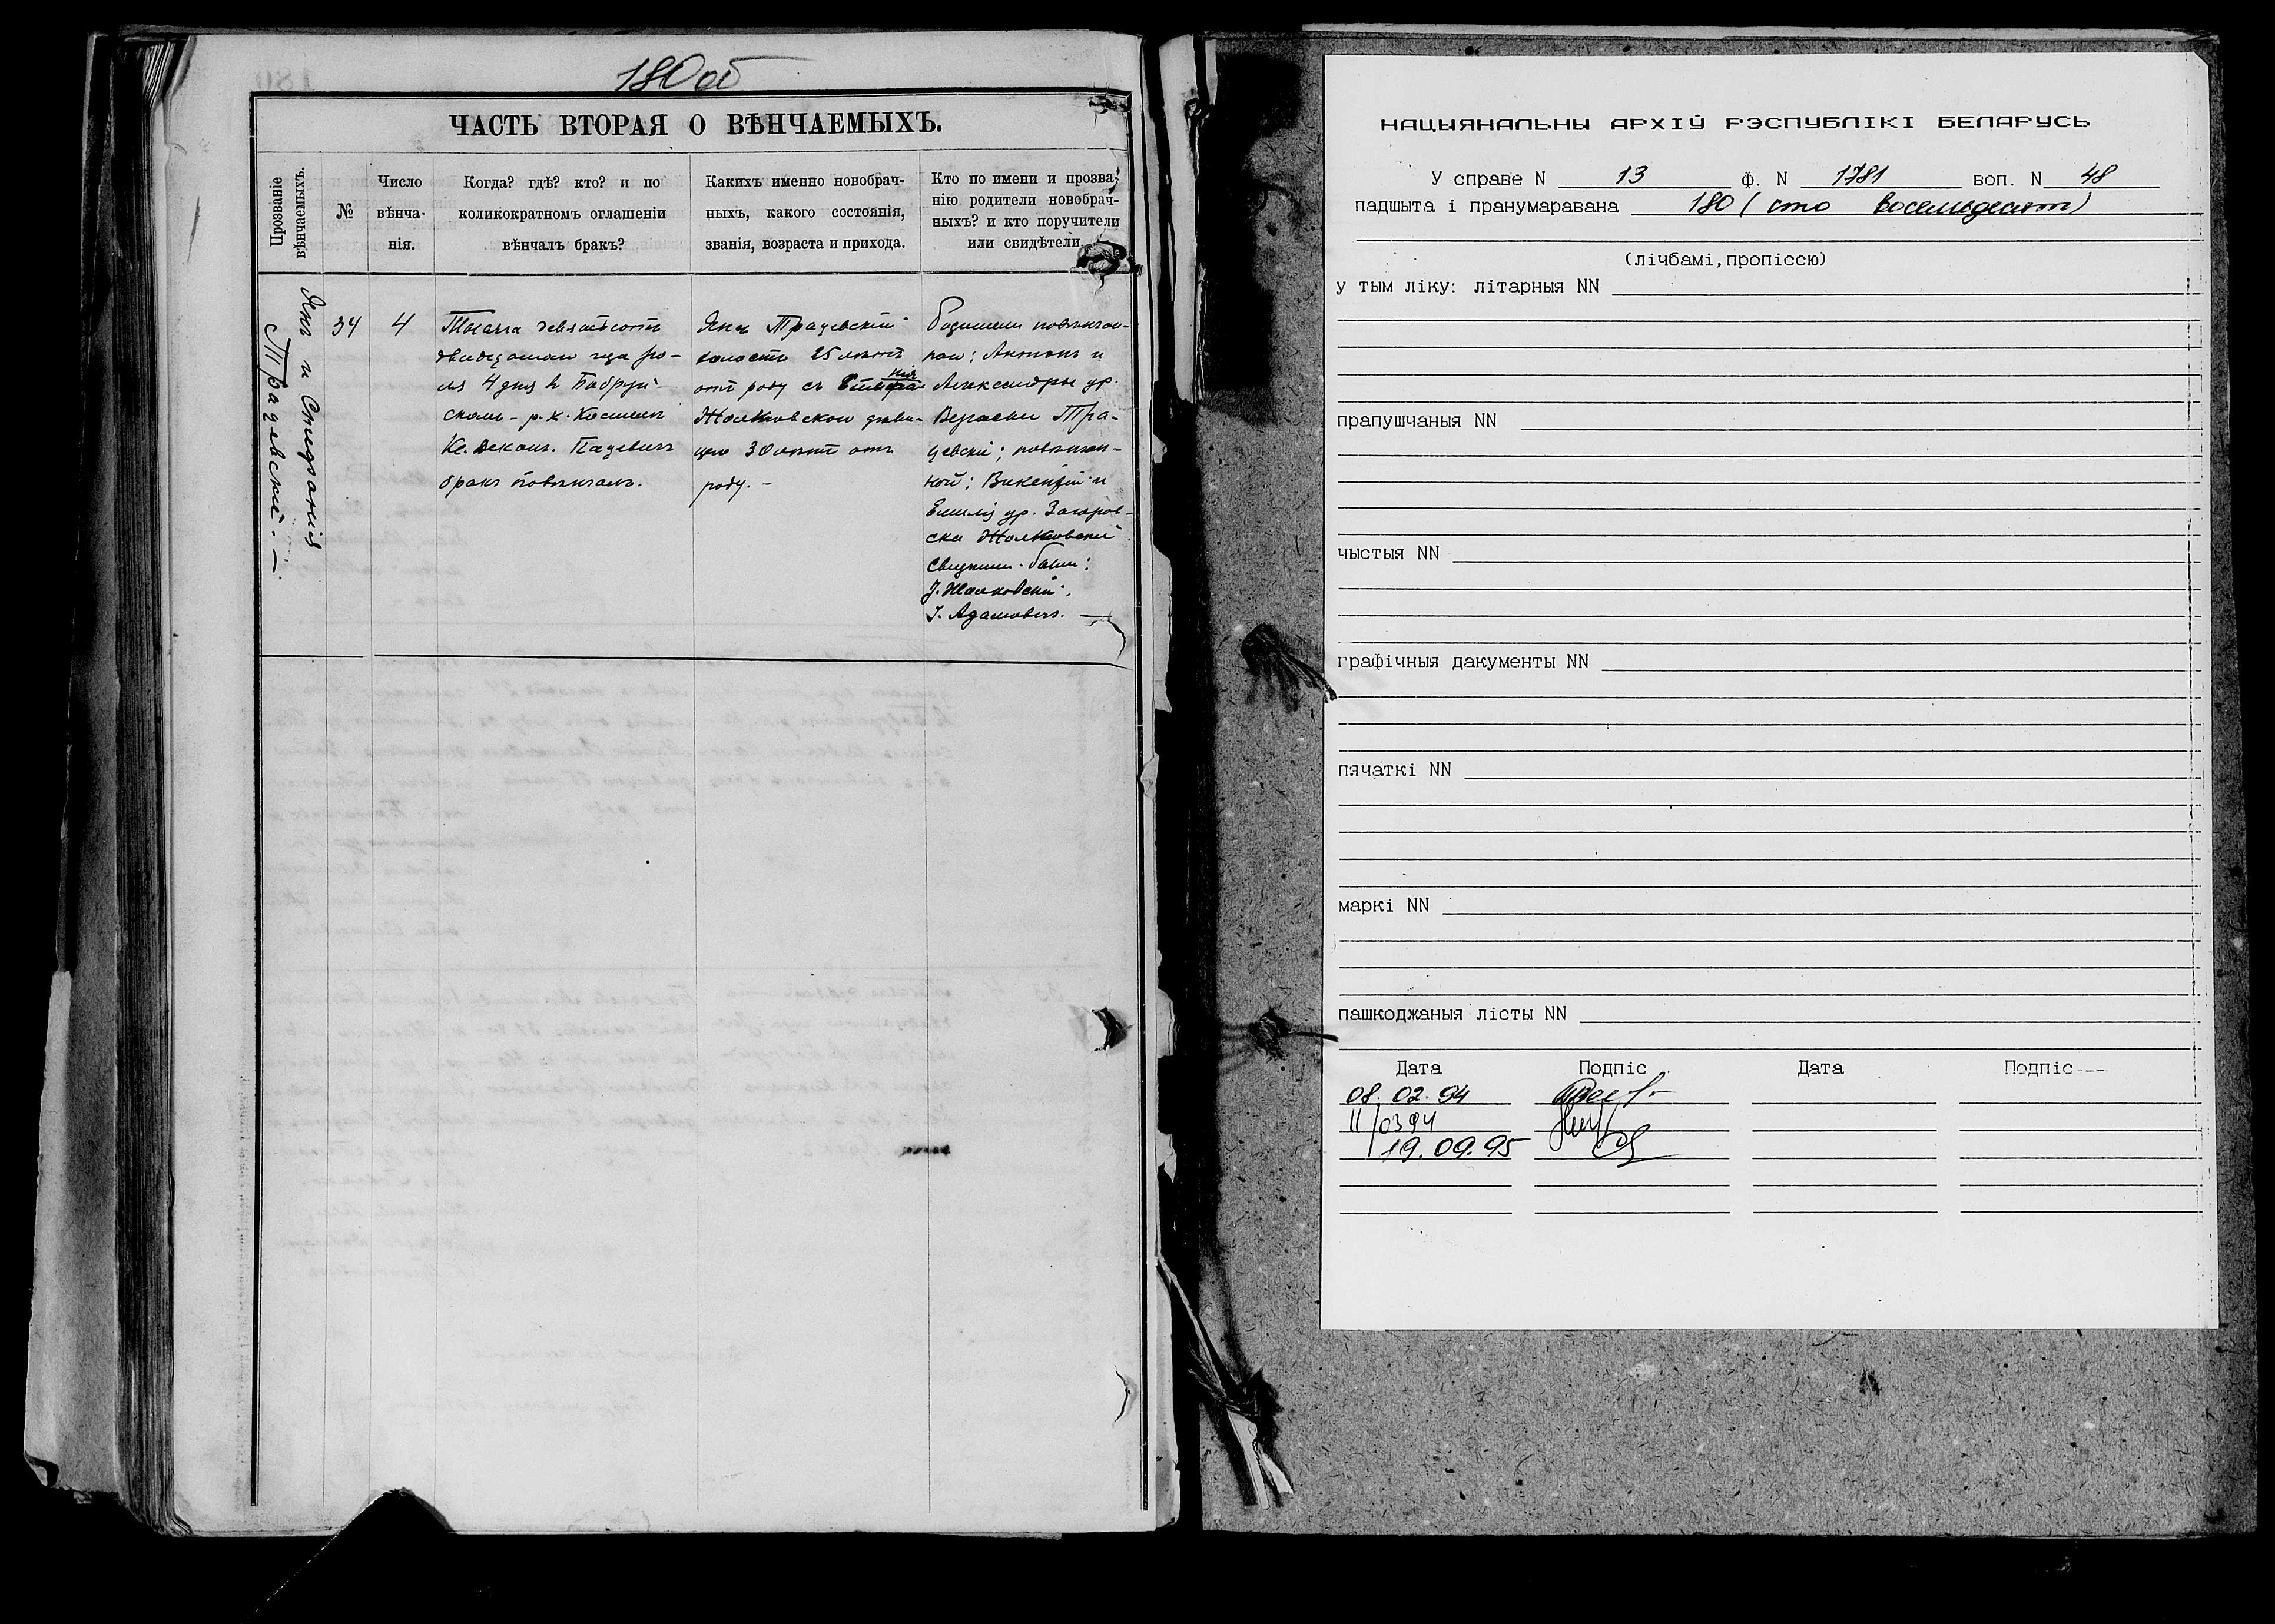 180 об
ЧАСТЬ ВТОРАЯ О ВѢНЧАЕМЫХЪ.
Прозваніе вѣнчаемыхъ.
№
Число вѣнча- нія.
Когда? гдѣ? кто? и по
коликократномъ оглашеніи
вѣнчалъ бракъ?
Какихъ именно новобрач-
ныхъ, какого состоянія,
званія, возраста и прихода.
Кто по имени и прозва-
нію родители новобрач-
ныхъ? и кто поручители
или свидѣтели.
Янъ и
34
4
Тысяча девятьсотъ
двадцатаго года
4 дня в Бобруй-
скомъ р. к. Костелѣ
Кс. Декан. Пацевичъ
бракъ повѣнчалъ.
Янъ
холостъ 25 лѣтъ
отъ роду съ
Жолковской дѣви-
цею 30 лѣтъ отъ
роду. -
Родители повѣнчан-
наго: Антонъ и
Александра ур.
повѣнчан-
ной: Викентій и
Емилія ур.
Жолковскій
были:
І. Жолковскій,
І. Адамовичъ. —
НАЦЫЯНАЛЬНЫ АРХІЎ РЭСПУБЛІКІ БЕЛАРУСЬ
У справе N 13 Ф. N 1781 воп. N 48
падшыта і пранумаравана 180 ( сто восемьдесят )
(лічбамі, пропіссю)
у тым ліку: літарныя NN
прапушчаныя NN
чыстыя NN
графічныя дакументы NN
пячаткі NN
маркі NN
пашкоджаныя лісты NN
Дата Подпіс Дата Подпіс
08. 02. 94
11/0394
19. 09. 95